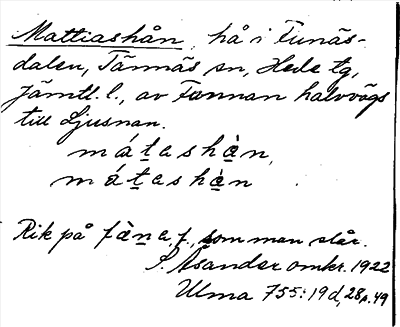 Mattiashån, hå i Funäs-
dalen, Tännäs sn, Hede tg,
Jämtl. l., av Funnan halvvägs
till Ljusnan.
mátashàn,
mátashàn
Rik på fàna, f., som man slår.
S. Åsander omkr. 1922
Ulma 755:19d, 28 p. 49